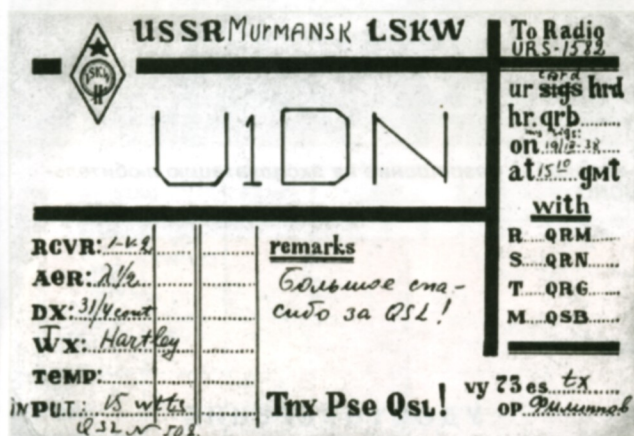 USSR MURMANSK LSKW
LSKW
U1ON
To Radio
URS-1582
card
ur sigs hrd
hr. qrb
on 19/12-38
at 15 10 GMT
with
R QRM
S QRN
T QRG
M QSB
RCVR: 1-V-2
AER: λ 1/2
DX: 31/4 cont
TX: Hartley
TEMP:
INPUT: 15 wtts
QSL N 508
remarks
Большое спа-
сибо за QSL!
Tnx Pse QSL!
vy 73 es tx
op Филиппов